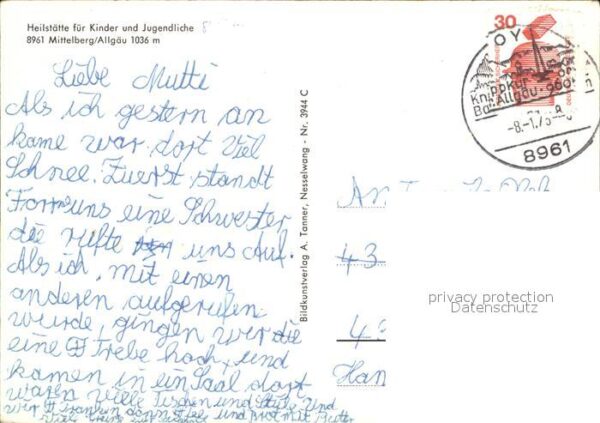 Heilstätte für Kinder und Jugendliche
8961 Mittelberg/Allgäu 1036 m
Liebe Mutti
Als ich gestern an
kame war dort viel
Schnee. Zuerst standt
uns eine Schwester
die rufte uns auf.
Als ich, mit einen
anderen aufgerufen
wurde, gingen wir die
eine Trebe hoch, und
kamen in ein Saal dort
waren viele Tischen und Stühle. Und
wir tranken dann Tee und Brot mit Butter
Bildkunstverlag A. Tanner, Nesselwang - Nr. 3944 C
30
OY
8961
An
43
privacy protection
Datenschutz
Han